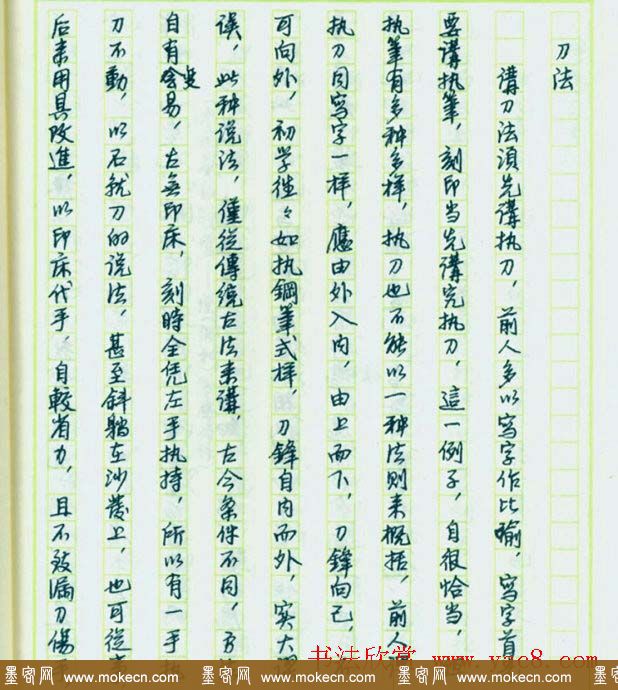 刀法
講刀法須先講执刀，前人多以寫字作比喻，寫字首
要講执筆，刻印当先講究执刀，這一例子，自很恰当，
执筆有多种多样，执刀也不能以一种法则来概括，前人
执刀同寫字一样，應由外入内，由上而下，刀鋒向己，
可向外，初学往々如执鋼筆式样，刀鋒自内而外，实大
误，此种说法，僅從傳统古法来講，古今条件不同，
自有变易，古無印床，刻時全凭左手执持，所以有一手执
刀不動，以石就刀的说法，甚至斜躺在沙發上，也可從
后来用具改進，以印床代手，自較省力，且不致漏刀傷
书法欣赏 www.yac8.com
墨客网 www.mokecn.com 墨客网 www.mokecn.com 墨客网 www.mokecn.com